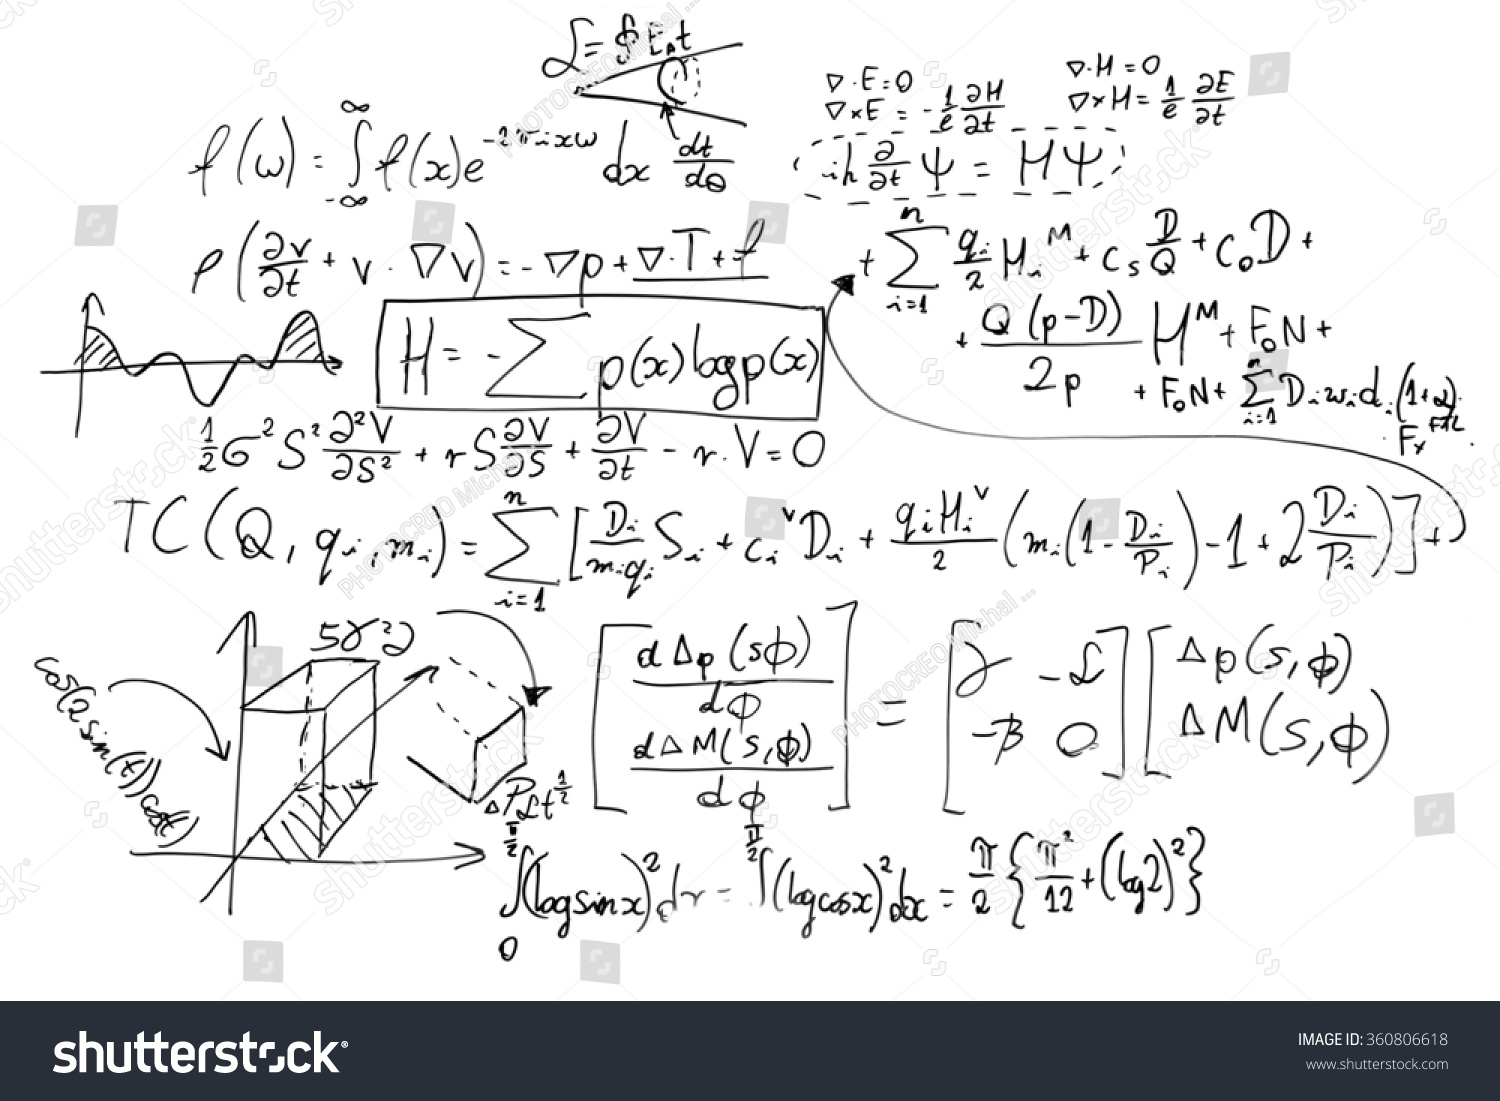 ℒ = ∮ E₀t
∇·E=0
∇×E = -1/e ∂H/∂t
∇·H=0
∇×H = 1/e ∂E/∂t
f(ω) = ∫_{-∞}^{∞} f(x)e^{-2πixω} dx dt/dθ
iħ ∂/∂t Ψ = HΨ
ρ(∂v/∂t + v·∇v) = -∇p + ∇·T + f
+ Σ_{i=1}^{n} q_i/2 H_i^M + C_s D/Q + C_0D +
+ Q(p-D)/2p H^M + F_0N +
+ F_0N + Σ_{i=1}^{n} D_i w_i d_i (1+α)
F_x
H = -Σ p(x) log p(x)
1/2 σ² S² ∂²V/∂S² + rS ∂V/∂S + ∂V/∂t - r·V = 0
TC(Q, q_i, m_i) = Σ_{i=1}^{n} [D_i/(m_i q_i) S_i + c_i^v D_i + q_i H_i^v/2 (m_i(1 - D_i/P_i) - 1 + 2 D_i/P_i)] +
5γ²∂
cos(2sin(t))
ΔPℒt^{1/2}
[dΔp(sϕ)/dϕ
dΔM(s,ϕ)/dϕ] = [γ -ℒ
-β 0] [Δp(s,ϕ)
ΔM(s,ϕ)]
∫_0^{π/2} (log sin x)² dx = ∫^{π/2} (log cos x)² dx = π/2 {π²/12 + (log 2)²}
shutterstock
IMAGE ID: 360806618
www.shutterstock.com